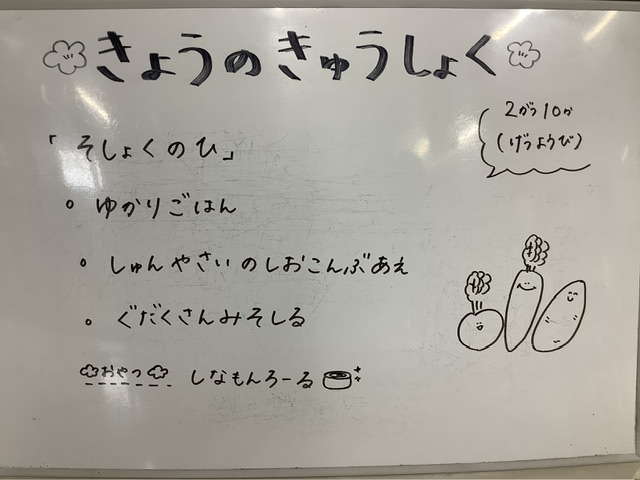 きょうのきゅうしょく
2がつ10か
(げつようび)
「そしょくのひ」
◦ ゆかりごはん
◦ しゅんやさいのしおこんぶあえ
◦ ぐだくさんみそしる
おやつ しなもんろーる